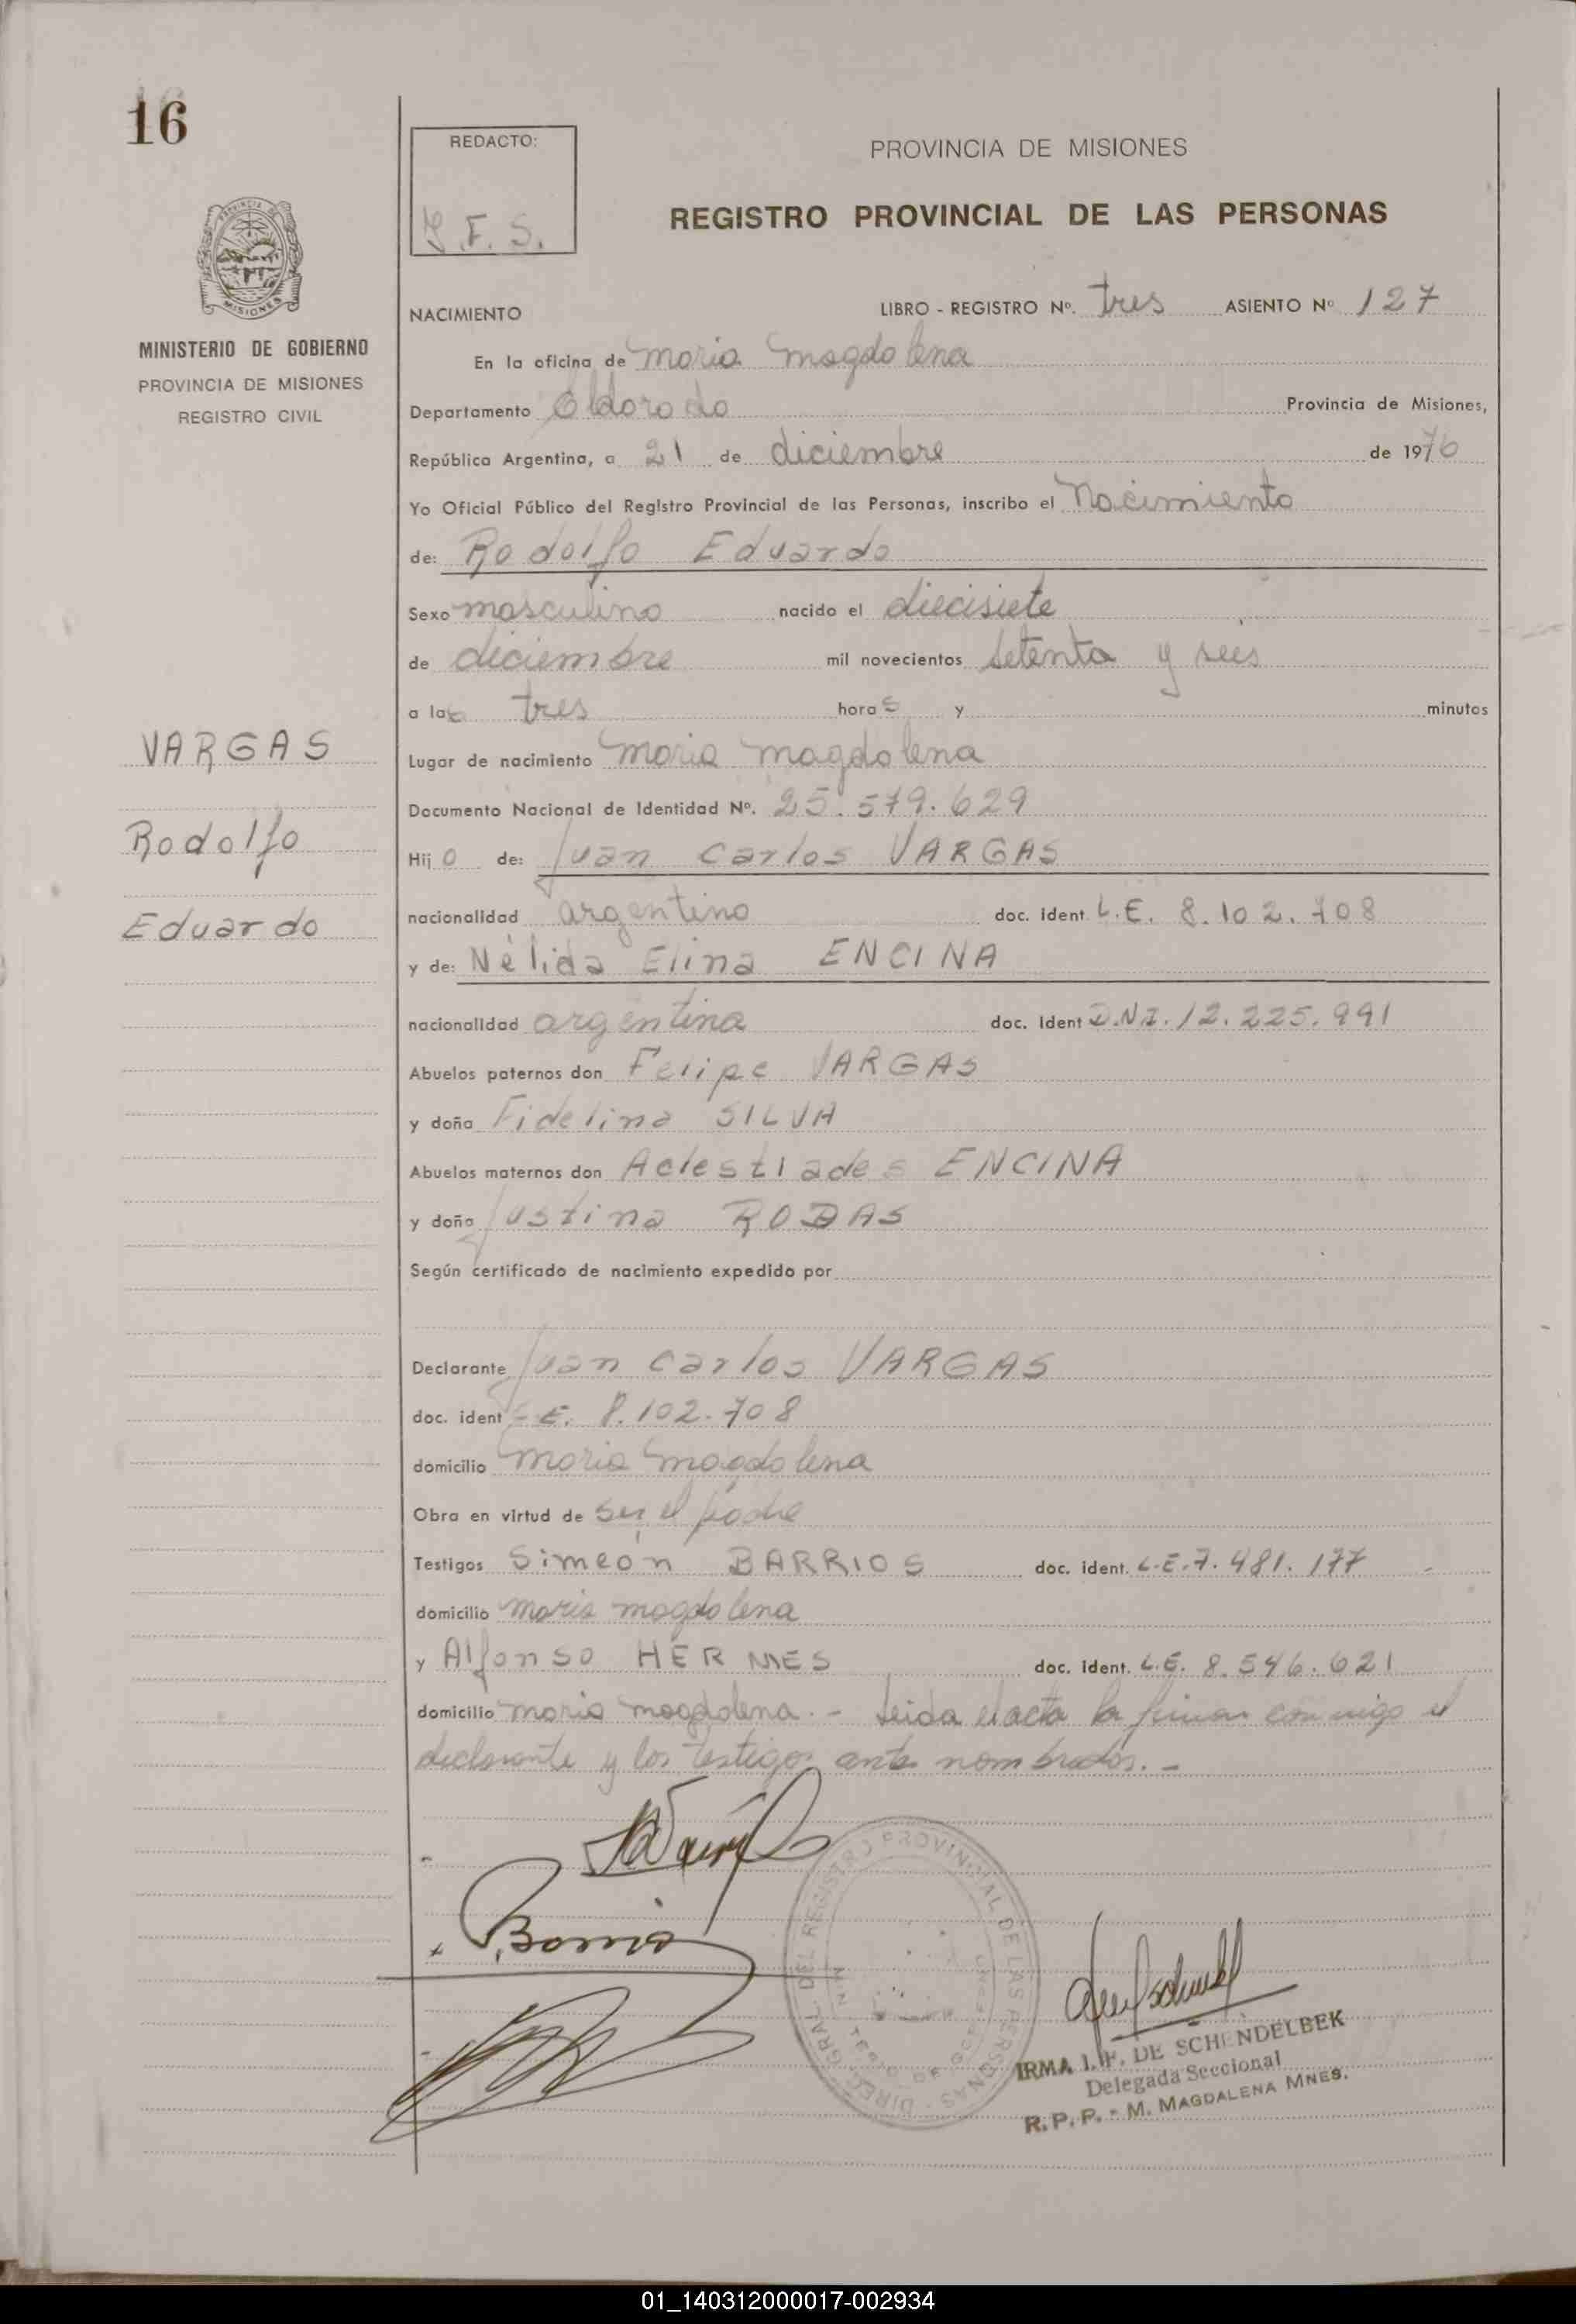 16
REDACTO:
PROVINCIA DE MISIONES
REGISTRO PROVINCIAL DE LAS PERSONAS
MINISTERIO DE GOBIERNO
PROVINCIA DE MISIONES
REGISTRO CIVIL
NACIMIENTO LIBRO - REGISTRO Nº. tres ASIENTO Nº 127
En la oficina de Maria Magdalena
Departamento Eldorado Provincia de Misiones,
República Argentina, a 21 de diciembre de 1976
Yo Oficial Público del Registro Provincial de las Personas, inscribo el Nacimiento
de: Rodolfo Eduardo
Sexo masculino nacido el diecisiete
de diciembre mil novecientos setenta y seis
a las tres horas y minutos
VARGAS
Rodolfo
Eduardo
Lugar de nacimiento Maria Magdalena
Documento Nacional de Identidad Nº. 25.579.629
Hijo de: Juan Carlos VARGAS
nacionalidad argentino doc. ident. L.E. 8.102.708
y de: Nélida Elina ENCINA
nacionalidad argentina doc. ident D.N.I. 12.225.991
Abuelos paternos don Felipe VARGAS
y doña Fidelina SILVA
Abuelos maternos don Aclestiades ENCINA
y doña Justina RODAS
Según certificado de nacimiento expedido por
Declarante Juan Carlos VARGAS
doc. ident L.E. 8.102.708
domicilio Maria Magdalena
Obra en virtud de ser el padre
Testigos Simeón BARRIOS doc. ident. L.E. 7.481.177
domicilio Maria Magdalena
y Alfonso HERMES doc. ident. L.E. 8.546.621
domicilio Maria Magdalena. - Leida el acta la firman conmigo el
declarante y los testigos antes nombrados. -
DIREC. GRAL. DEL REGISTRO PROVINCIAL DE LAS PERSONAS
IRMA I. F. DE SCHENDELBEK
Delegada Seccional
R. P. P. - M. MAGDALENA MNES.
01_140312000017-002934